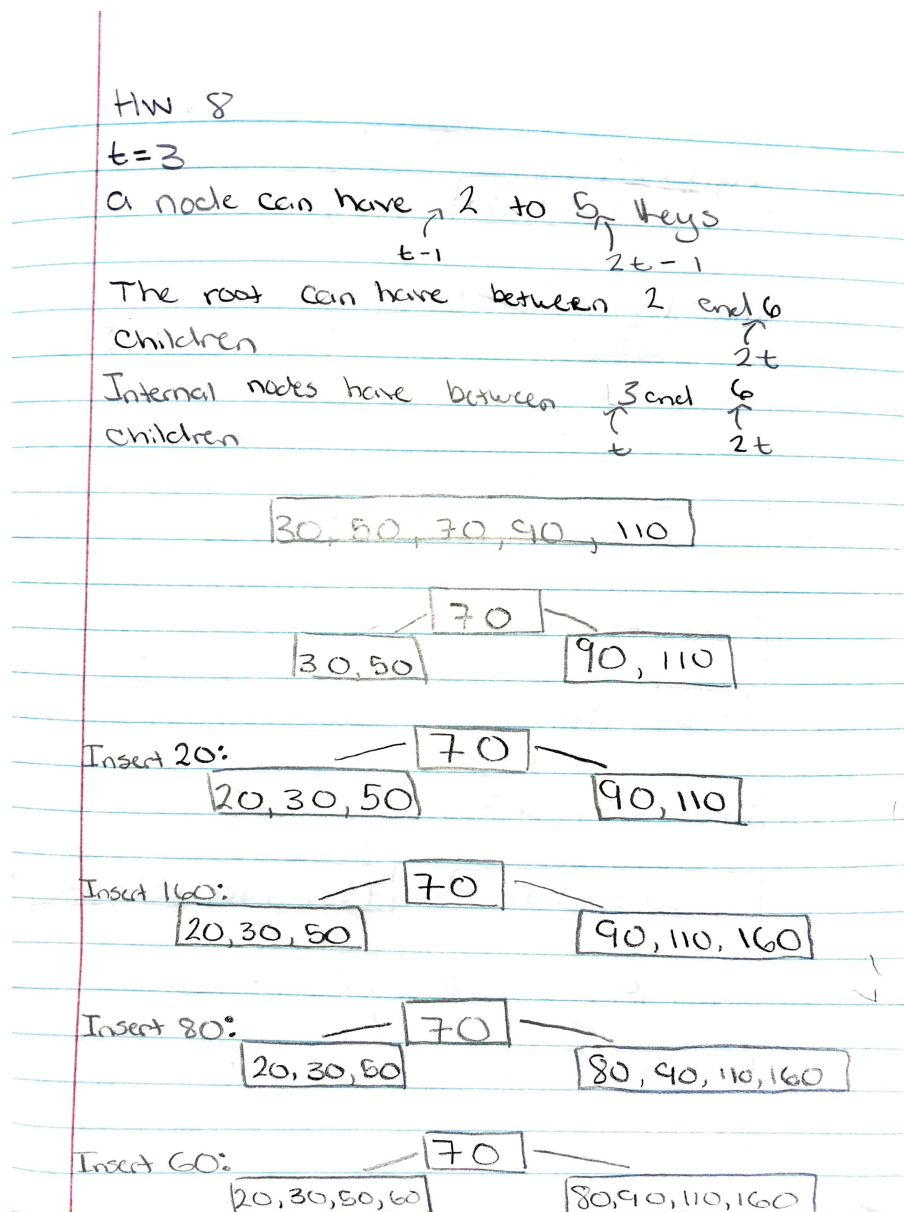 HW 8
t=3
a node can have 2 to 5 keys
t-1 2t-1
The root can have between 2 and 6
children 2t
Internal nodes have between 3 and 6
children t 2t
30, 50, 70, 90, 110
70
30, 50 90, 110
Insert 20: 70
20, 30, 50 90, 110
Insert 160: 70
20, 30, 50 90, 110, 160
Insert 80: 70
20, 30, 50 80, 90, 110, 160
Insert 60: 70
20, 30, 50, 60 80, 90, 110, 160